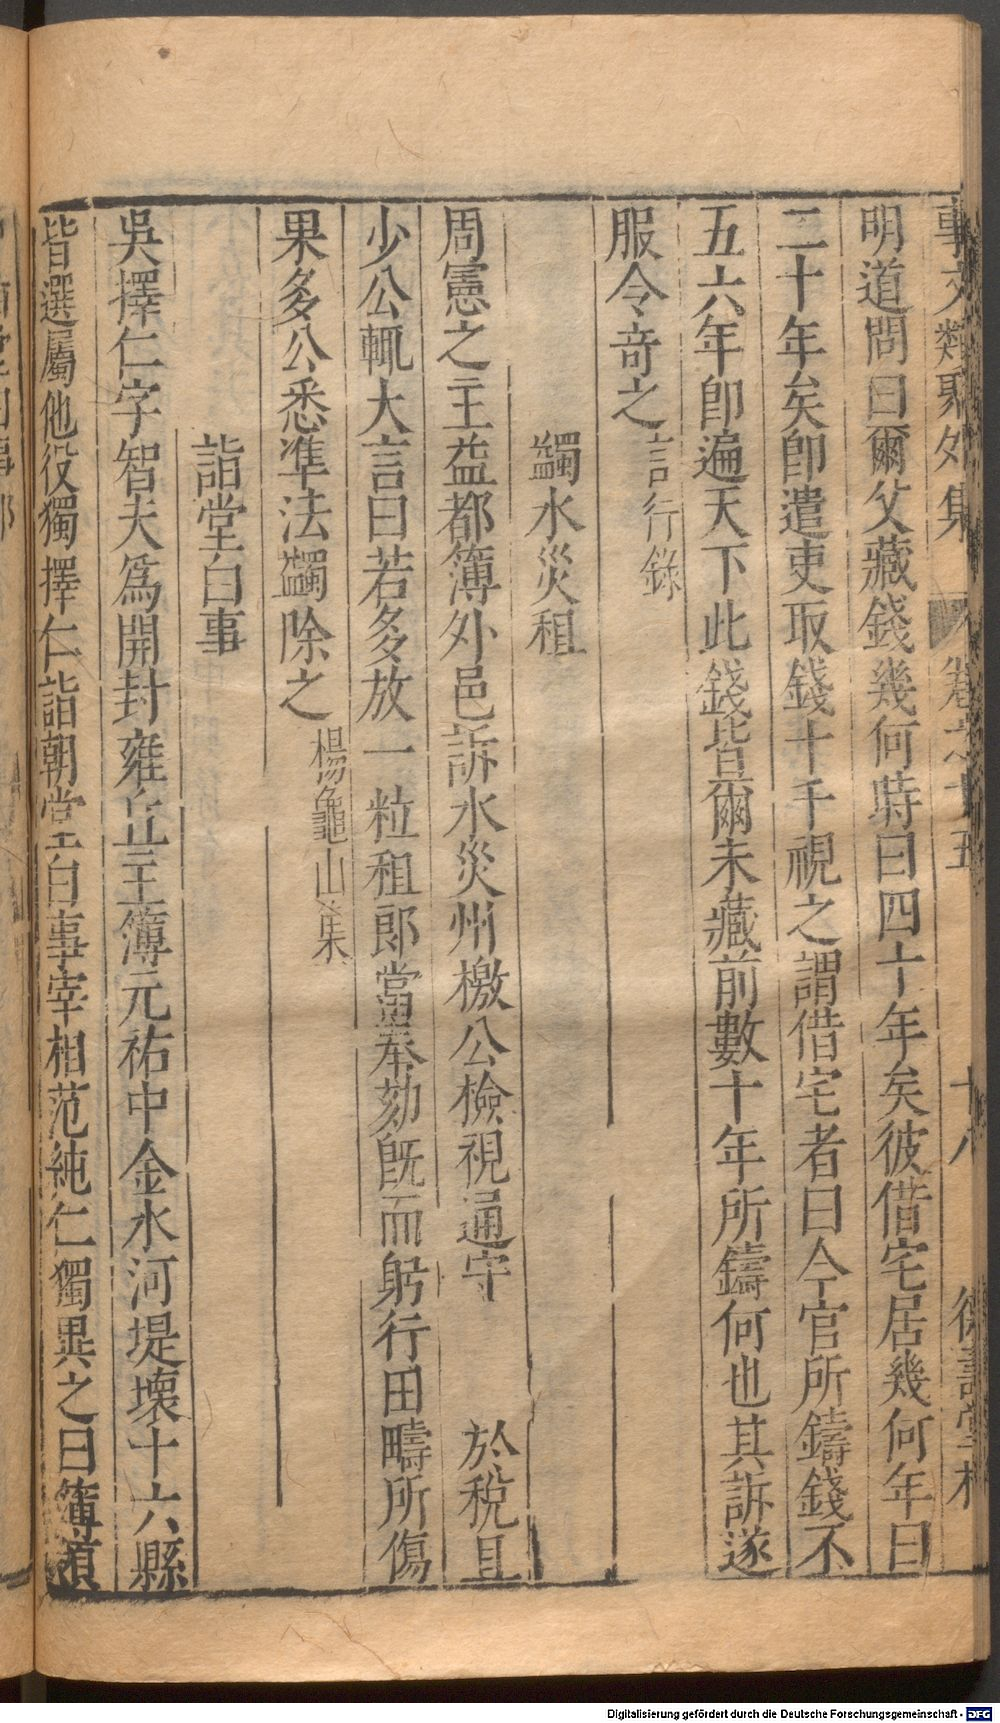 事文類聚外集 卷之十五 十八 德壽堂梓
明道問曰爾父藏錢幾何時曰四十年矣彼借宅居幾何年曰
二十年矣卽遣吏取錢十千視之謂借宅者曰今官所鑄錢不
五六年卽遍天下此錢皆爾未藏前數十年所鑄何也其訴遂
服令奇之言行錄
蠲水災租
周憲之主益都簿外邑訴水災州檄公檢視通守 於稅且
少公輒大言曰若多放一粒租郎當奉劾旣而躬行田疇所傷
果多公悉準法蠲除之楊龜山集
詣堂白事
吳擇仁字智夫爲開封雍丘主簿元祐中金水河堤壞十六縣
皆選屬他役獨擇仁詣朝堂白事宰相范純仁獨異之曰簿領
Digitalisierung gefördert durch die Deutsche Forschungsgemeinschaft - DFG